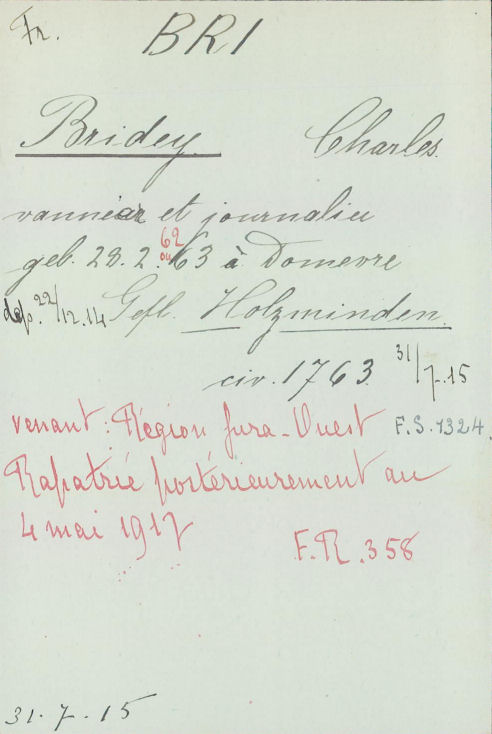 Fr. BRI
Bridey Charles
vannier et journalier
62
geb. 28.2. ou 63 à Domevre
dep. 22/12.14 Gefl. Holzminden.
civ. 1763 31/7.15
venant : Région Jura-Ouest F.S. 1324.
Rapatrié postérieurement au
4 mai 1917
F.R. 358
31.7.15